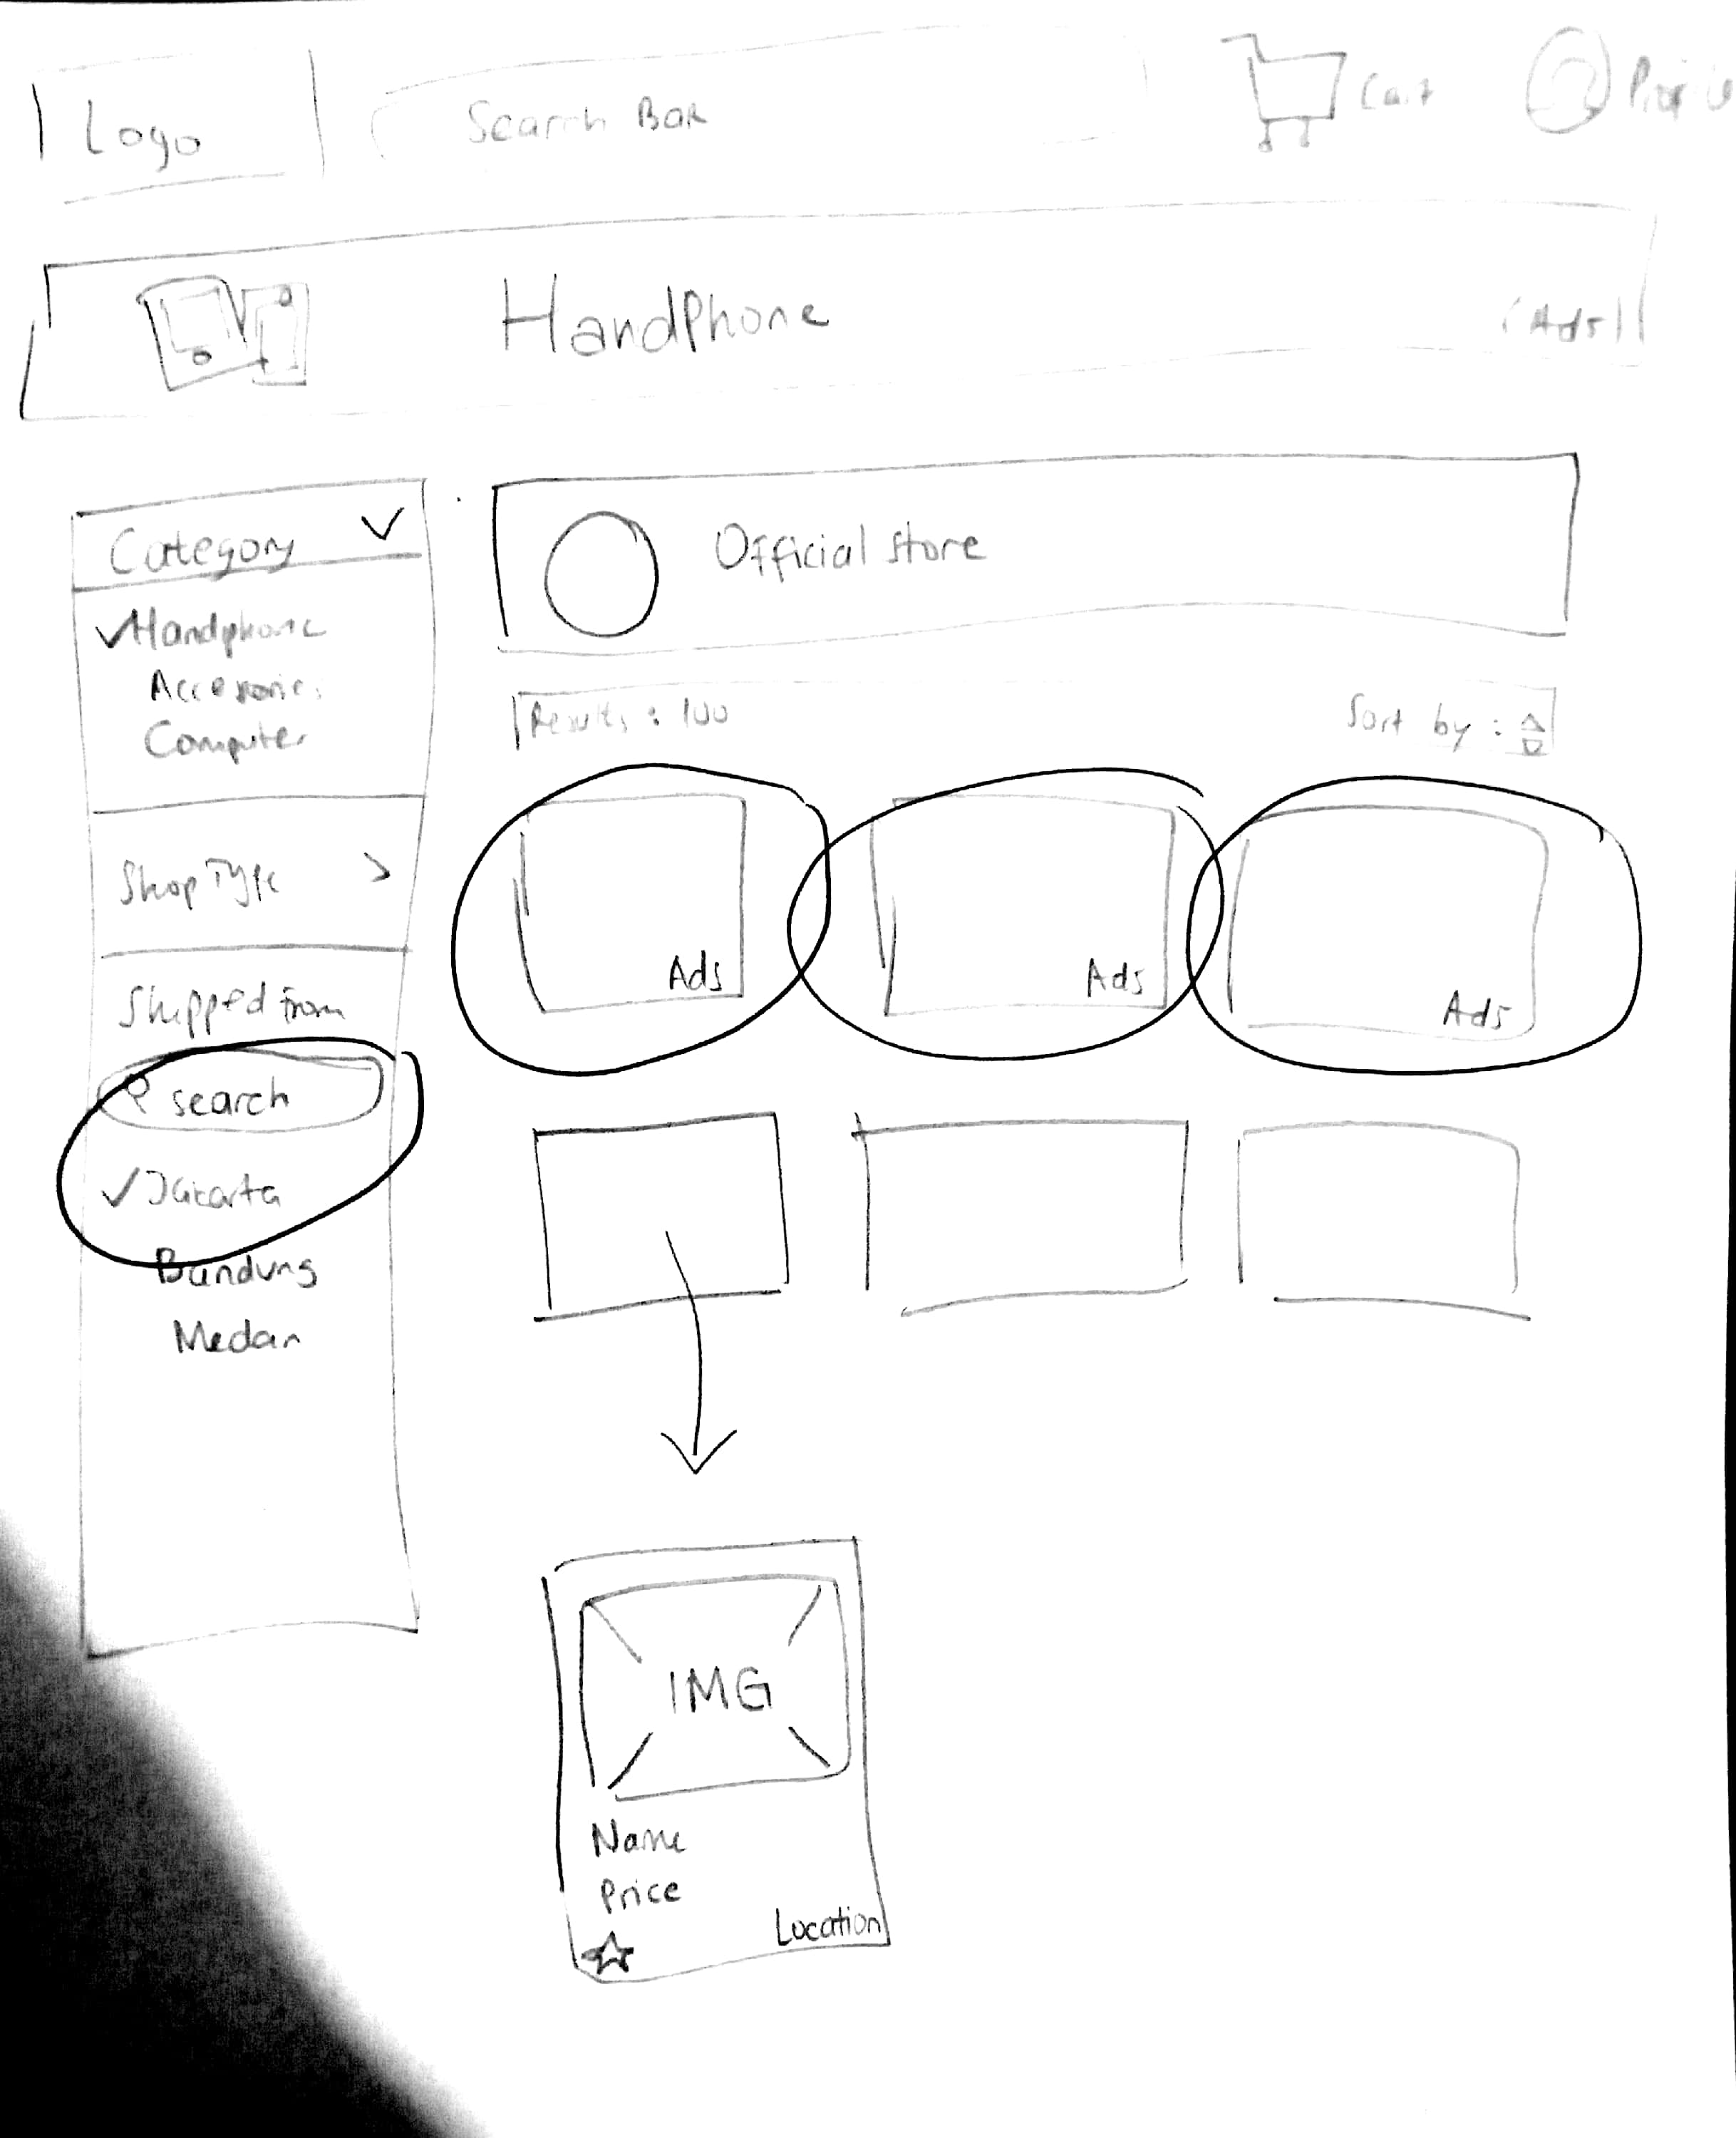 Logo
Search Bar
Cart
HandPhone
(Ads)
Category
Handphone
Computer
Shop Type >
Shipped from
search
Jakarta
Bandung
Medan
Official store
Results : 100
Sort by :
Ads
Ads
Ads
IMG
Name
Price
Location